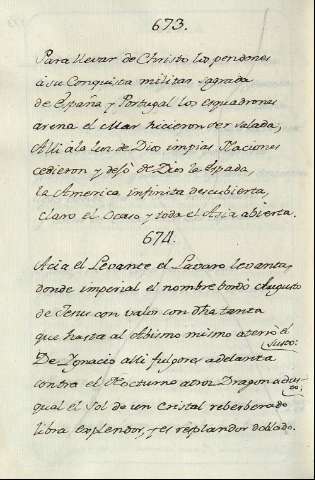 673.
Para llevar de Christo los pendones
à su Conquista militar sagrada
de España y Portugal los esquadrones
arena el Mar hicieron ser salada,
Alli à la luz de Dios impias Naciones
cedieron y dejò de Dios la Espada,
la America infinita descubierta,
claro el Ocaso, y toda el Asia abierta.
674.
Acia el Levante el Lavaro levanta,
donde imperial el nombre bordò Augusto
de Jesus con valor con dha tanta
que hasta al Abismo mismo aterrò el
susto:
De Ignacio alli fulgores adelanta
contra el Nocturno atroz Dragon adus-
to:
qual el Sol de un Cristal reberberado
libra explendor, y es resplandor doblado.